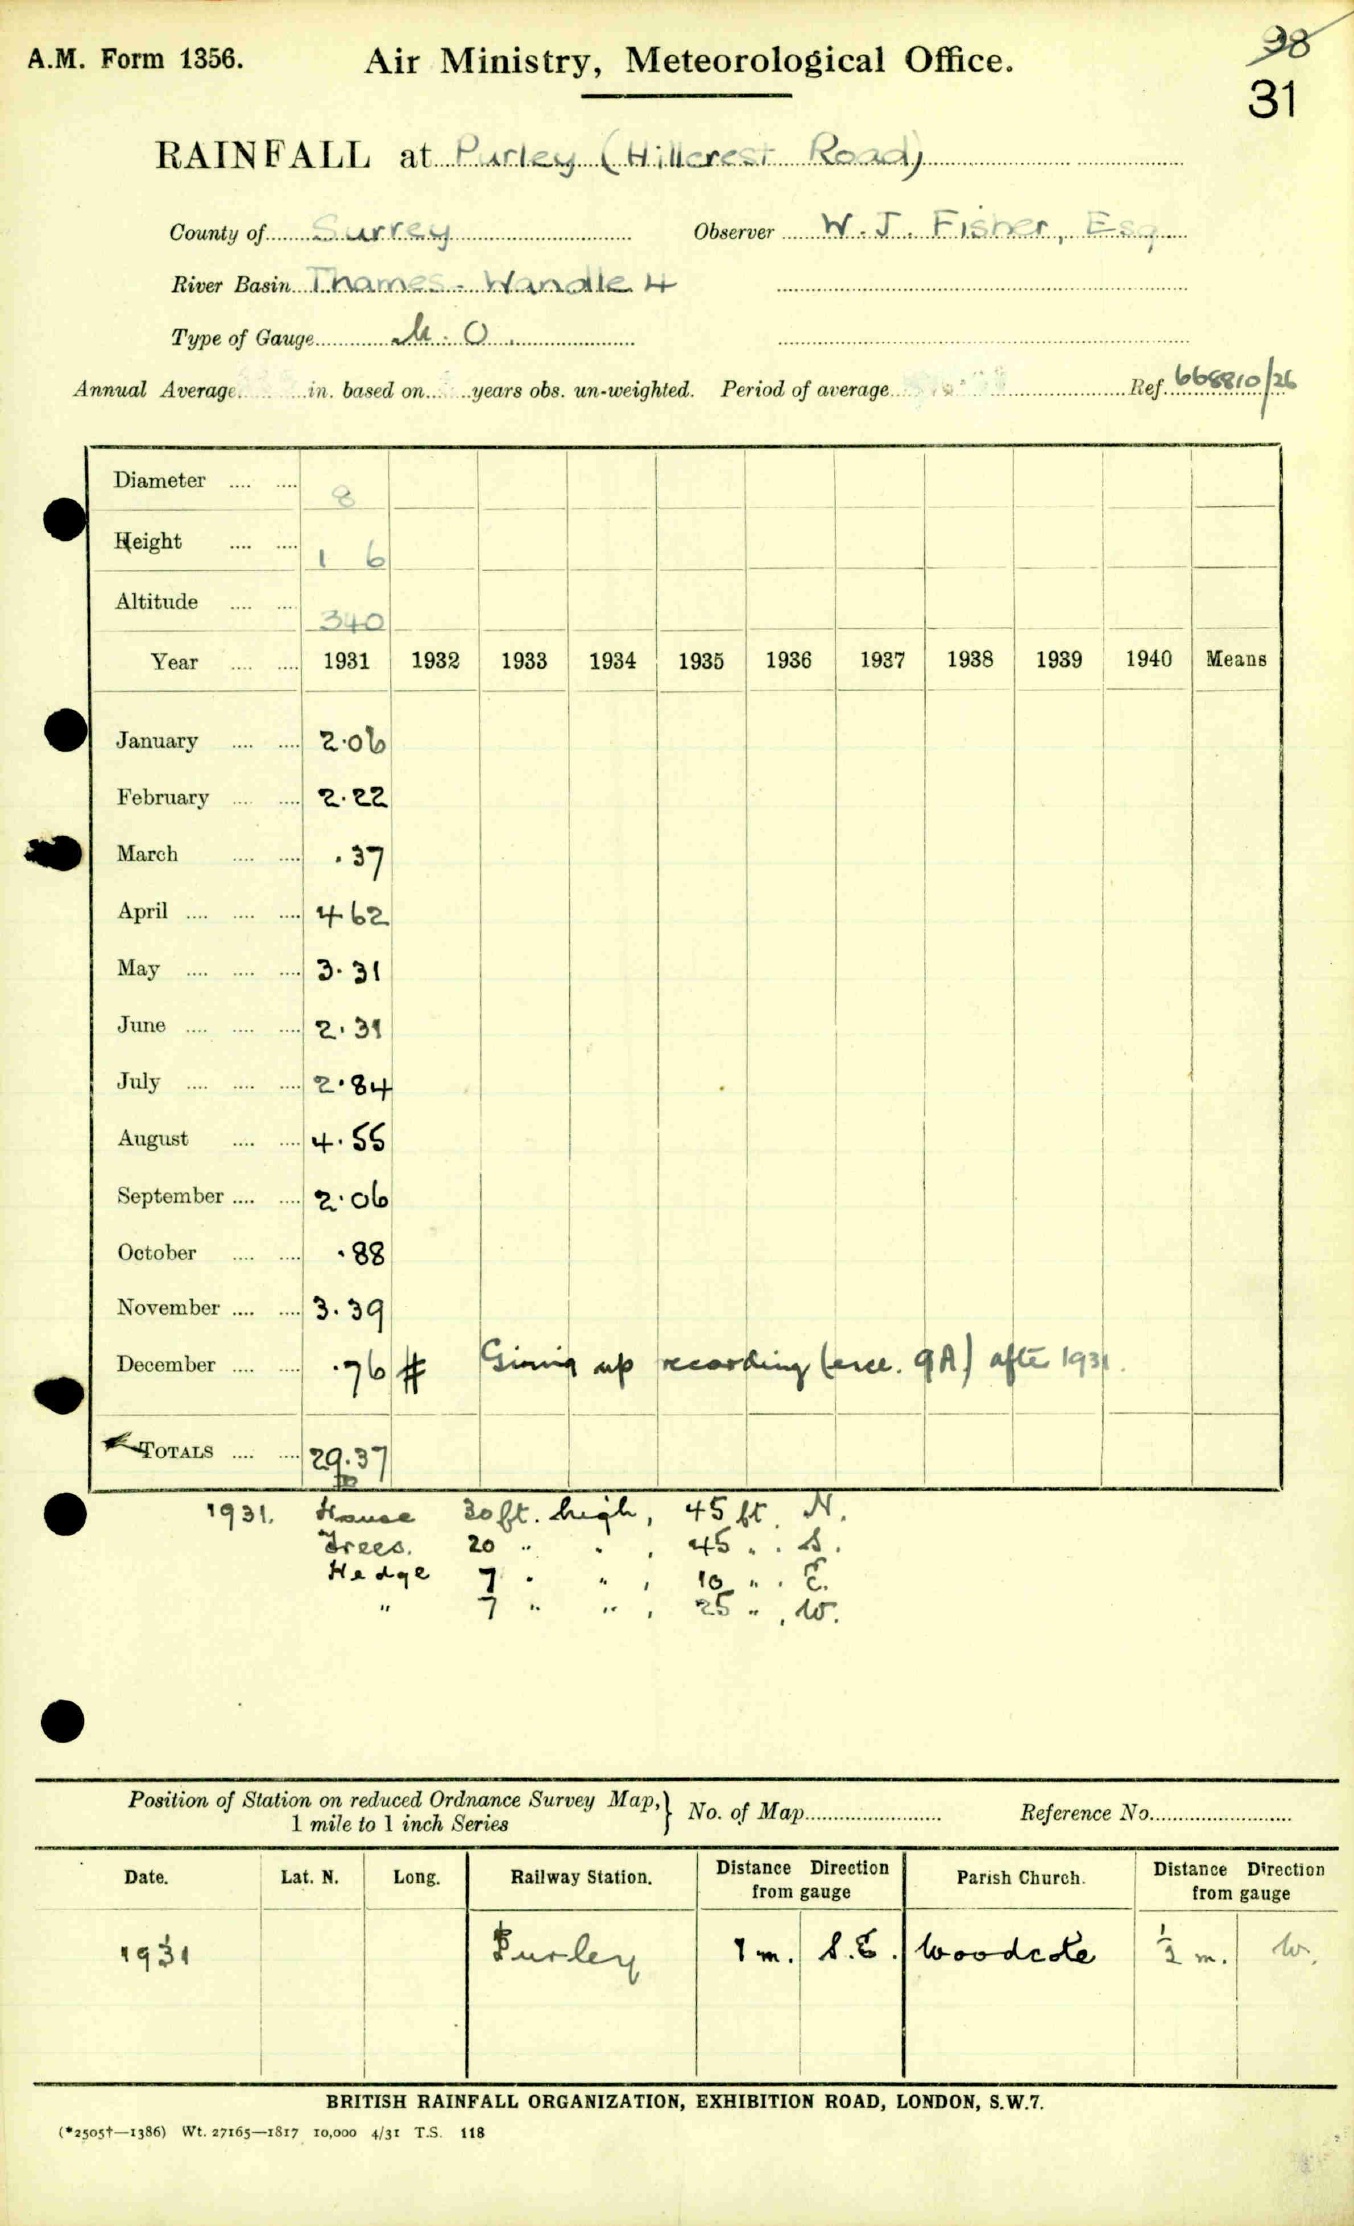 98
A.M. Form 1356. Air Ministry, Meteorological Office.
31
RAINFALL at Purley (Hillcrest Road)
County of Surrey Observer W. J. Fisher, Esq
River Basin Thames - Wandle 4
Type of Gauge M.O.
Annual Average in. based on years obs. un-weighted. Period of average Ref. 668810/26
Diameter 8
Height 1 6
Altitude 340
Year 1931 1932 1933 1934 1935 1936 1937 1938 1939 1940 Means
January 2.06
February 2.22
March .37
April 4 62
May 3.31
June 2.31
July 2.84
August 4.55
September 2.06
October .88
November 3.39
December .76 # Giving up recording (esce. 9A) after 1931.
TOTALS 29.37
1931. House 30 ft. high, 45 ft. N.
Trees. 20 " " , 45 " . S.
Hedge 7 " " , 10 " . E.
" 7 " " , 25 " , W.
Position of Station on reduced Ordnance Survey Map, } No. of Map Reference No.
1 mile to 1 inch Series
Date. Lat. N. Long. Railway Station. Distance Direction from gauge Parish Church. Distance Direction from gauge
1931 Purley 1 m. S.E. Woodcote ½ m. W.
BRITISH RAINFALL ORGANIZATION, EXHIBITION ROAD, LONDON, S.W.7.
(*2505†—1386) Wt. 27165—1817 10,000 4/31 T.S. 118